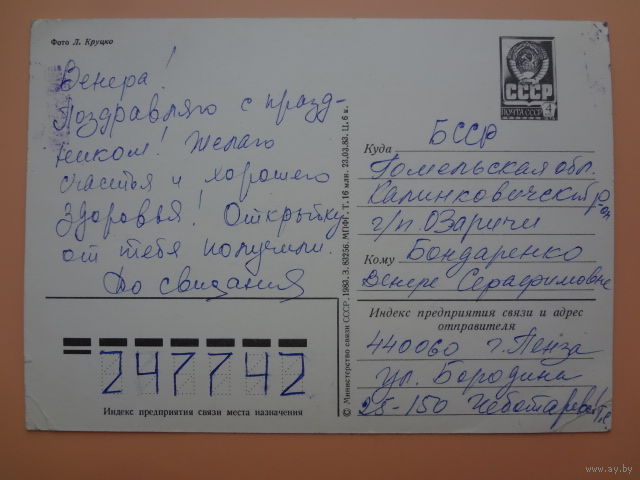 Фото Л. Круцко
Венера!
Поздравляю с празд-
ником! Желаю
счастья и хорошего
здоровья! Открытку
от тебя получили.
До свидания
247742
Индекс предприятия связи места назначения
© Министерство связи СССР, 1983. З. 83256. МПФГ. Т. 16 млн. 23.03.83. Ц. 6 к.
СССР
ПОЧТА СССР 4
Куда БССР
Гомельская обл.
Калинковичский р-он
г/п. Озаричи
Кому Бондаренко
Венере Серафимовне
Индекс предприятия связи и адрес
отправителя
440060 г. Пенза
ул. Бородина
25-150
www.ay.by